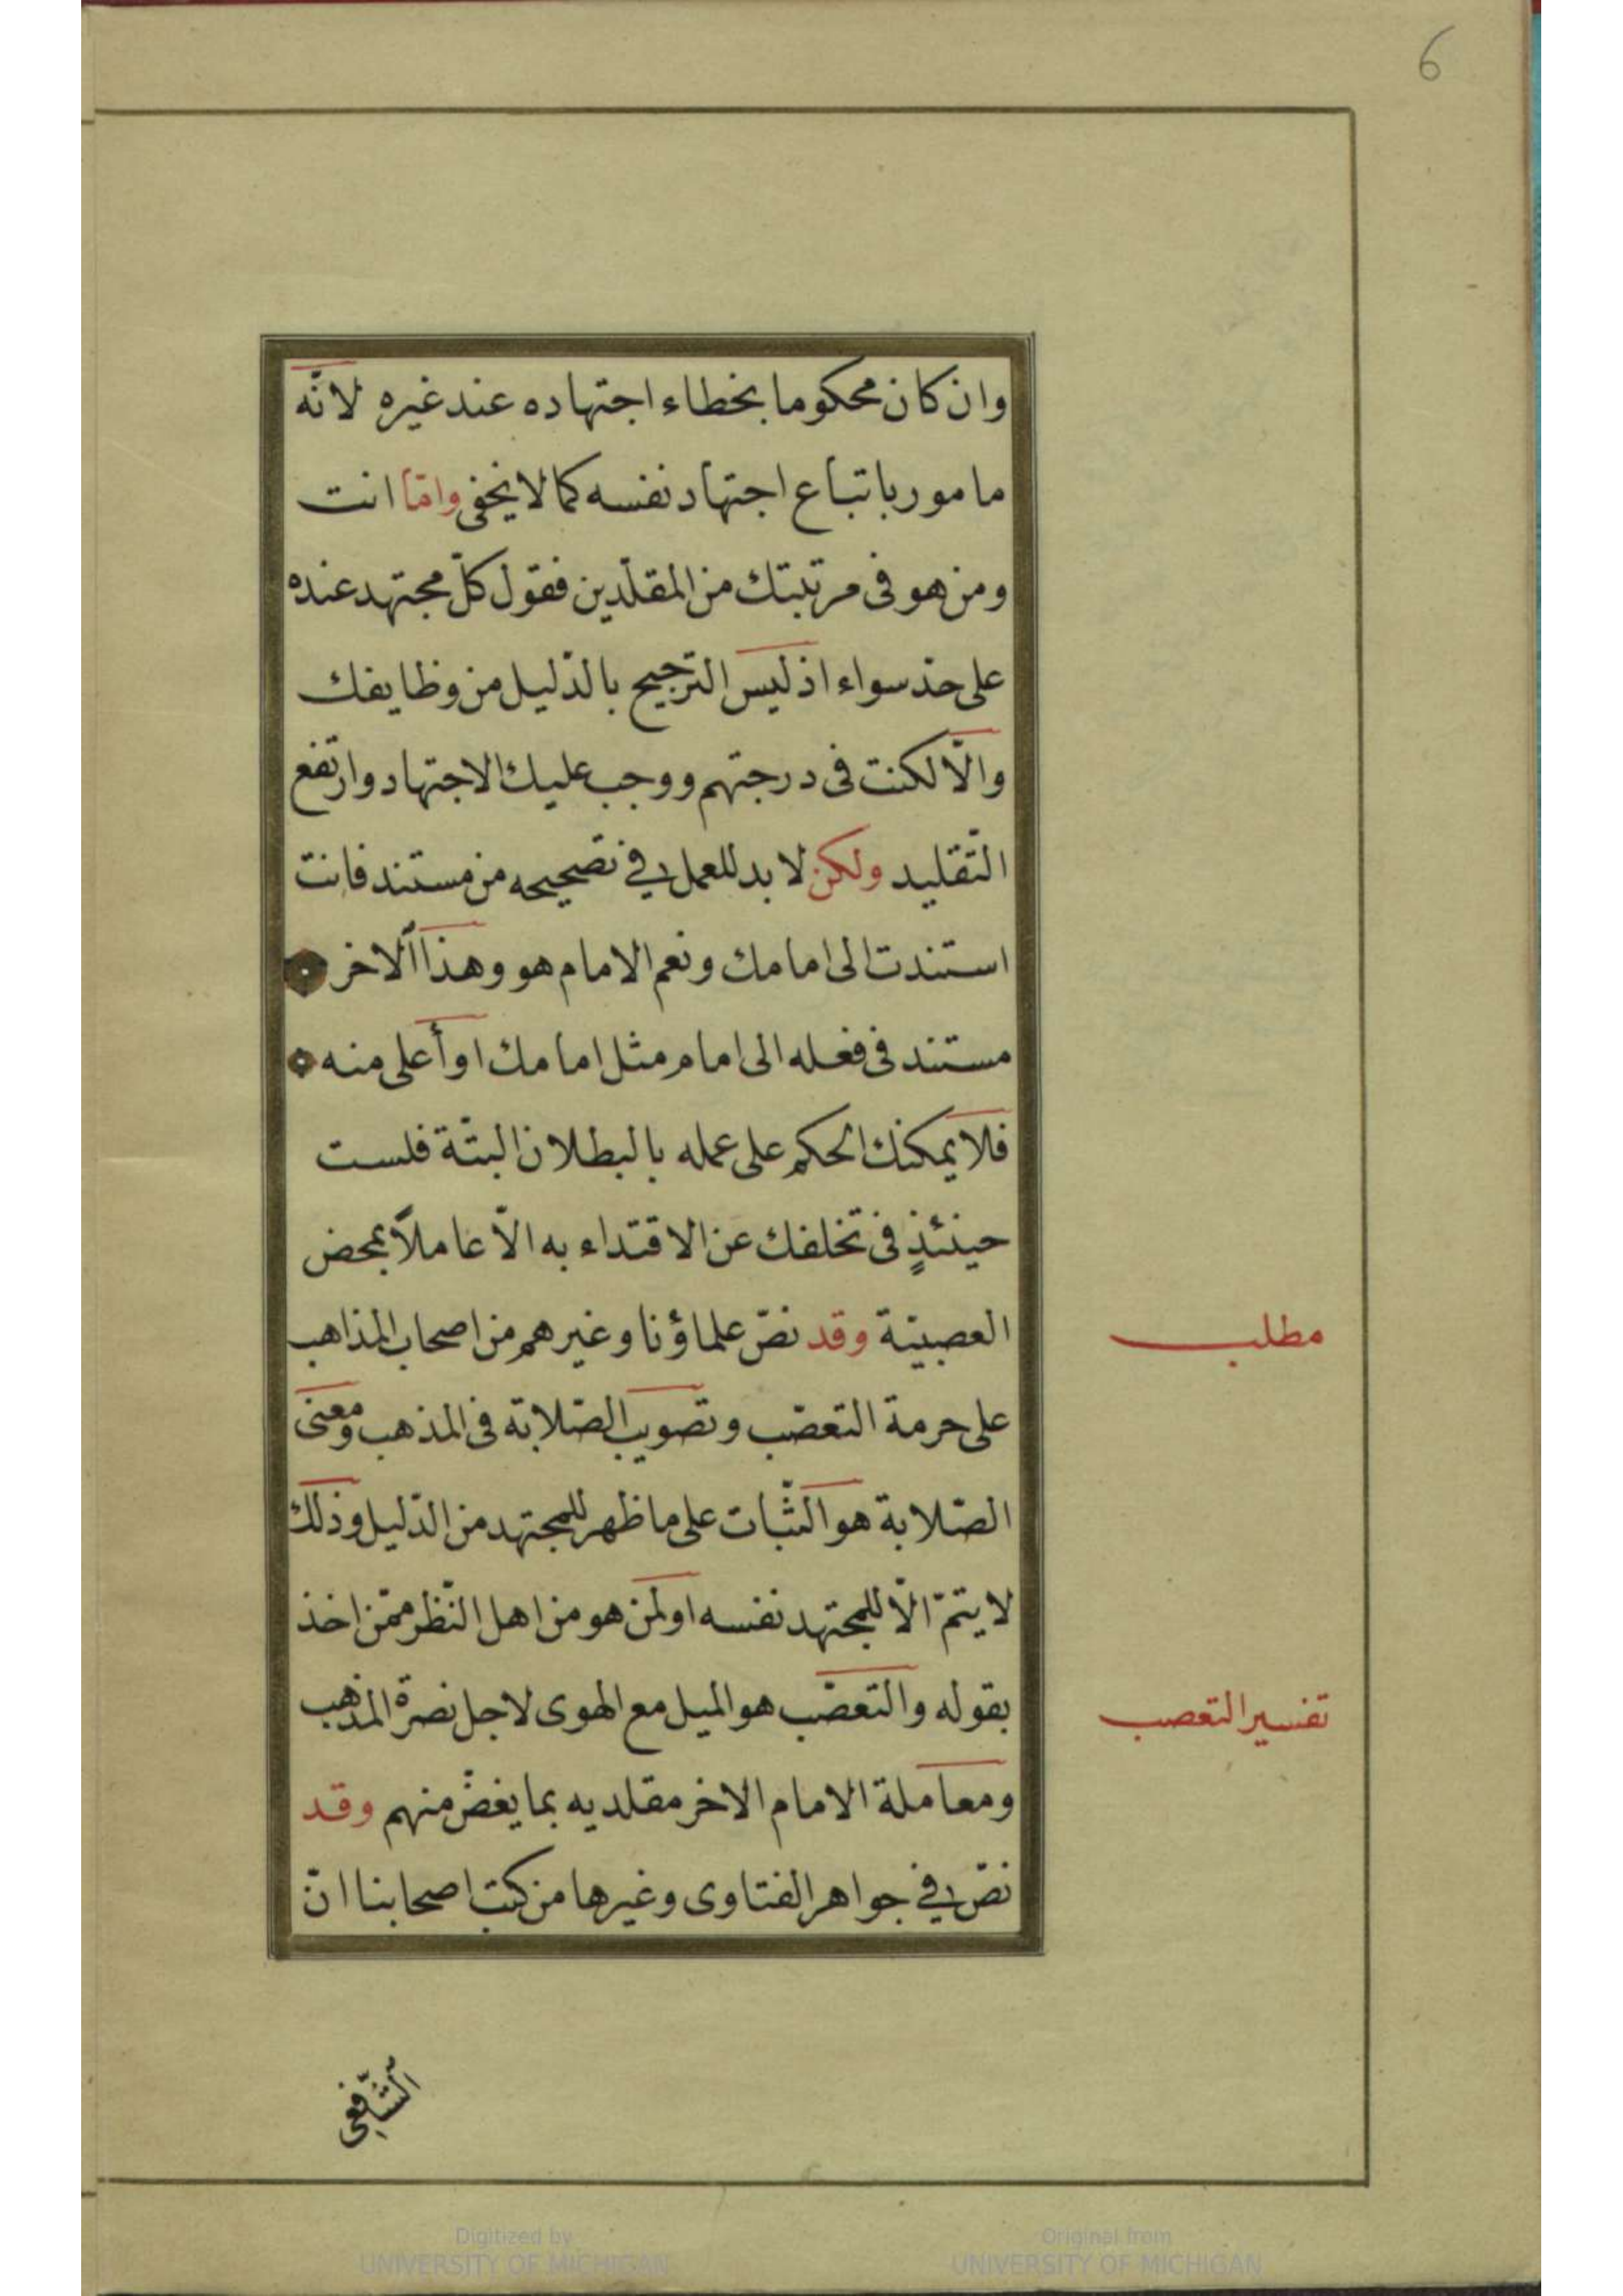 6
وان كان محكوما بخطاء اجتهاده عند غيره لانّه
مامور باتباع اجتهاد نفسه كما لا يخفى وامّا انت
ومن هو فى مرتبتك من المقلّدين فقول كلّ مجتهد عنده
على حدّ سواء اذ ليس الترجيح بالدّليل من وظايفك
والّا لكنت فى درجتهم ووجب عليك الاجتهاد وارتفع
التّقليد ولكن لا بد للعمل في تصحيحه من مستند فانت
استندت الى امامك ونعم الامام هو وهذا الاخر
مستند فى فعله الى امام مثل امامك او أعلى منه
فلا يمكنك الحكم على عمله بالبطلان البتّة فلست
حينئذٍ فى تخلفك عن الاقتداء به الّا عاملًا بمحض
العصبيّة وقد نصّ علماؤنا وغيرهم من اصحاب المذاهب
مطلب
على حرمة التعصّب وتصويب الصّلابة فى المذهب ومعنى
الصّلابة هو الثّبات على ما ظهر للمجتهد من الدّليل وذلك
لا يتمّ الّا للمجتهد نفسه او لمن هو من اهل النّظر ممّن اخذ
بقوله والتعصّب هو الميل مع الهوى لاجل نصرة المذهب
تفسير التعصب
ومعاملة الامام الاخر مقلديه بما يغضّ منهم وقد
نصّ في جواهر الفتاوى وغيرها من كتب اصحابنا انّ
الشّافعى
Digitized by
UNIVERSITY OF MICHIGAN
Original from
UNIVERSITY OF MICHIGAN